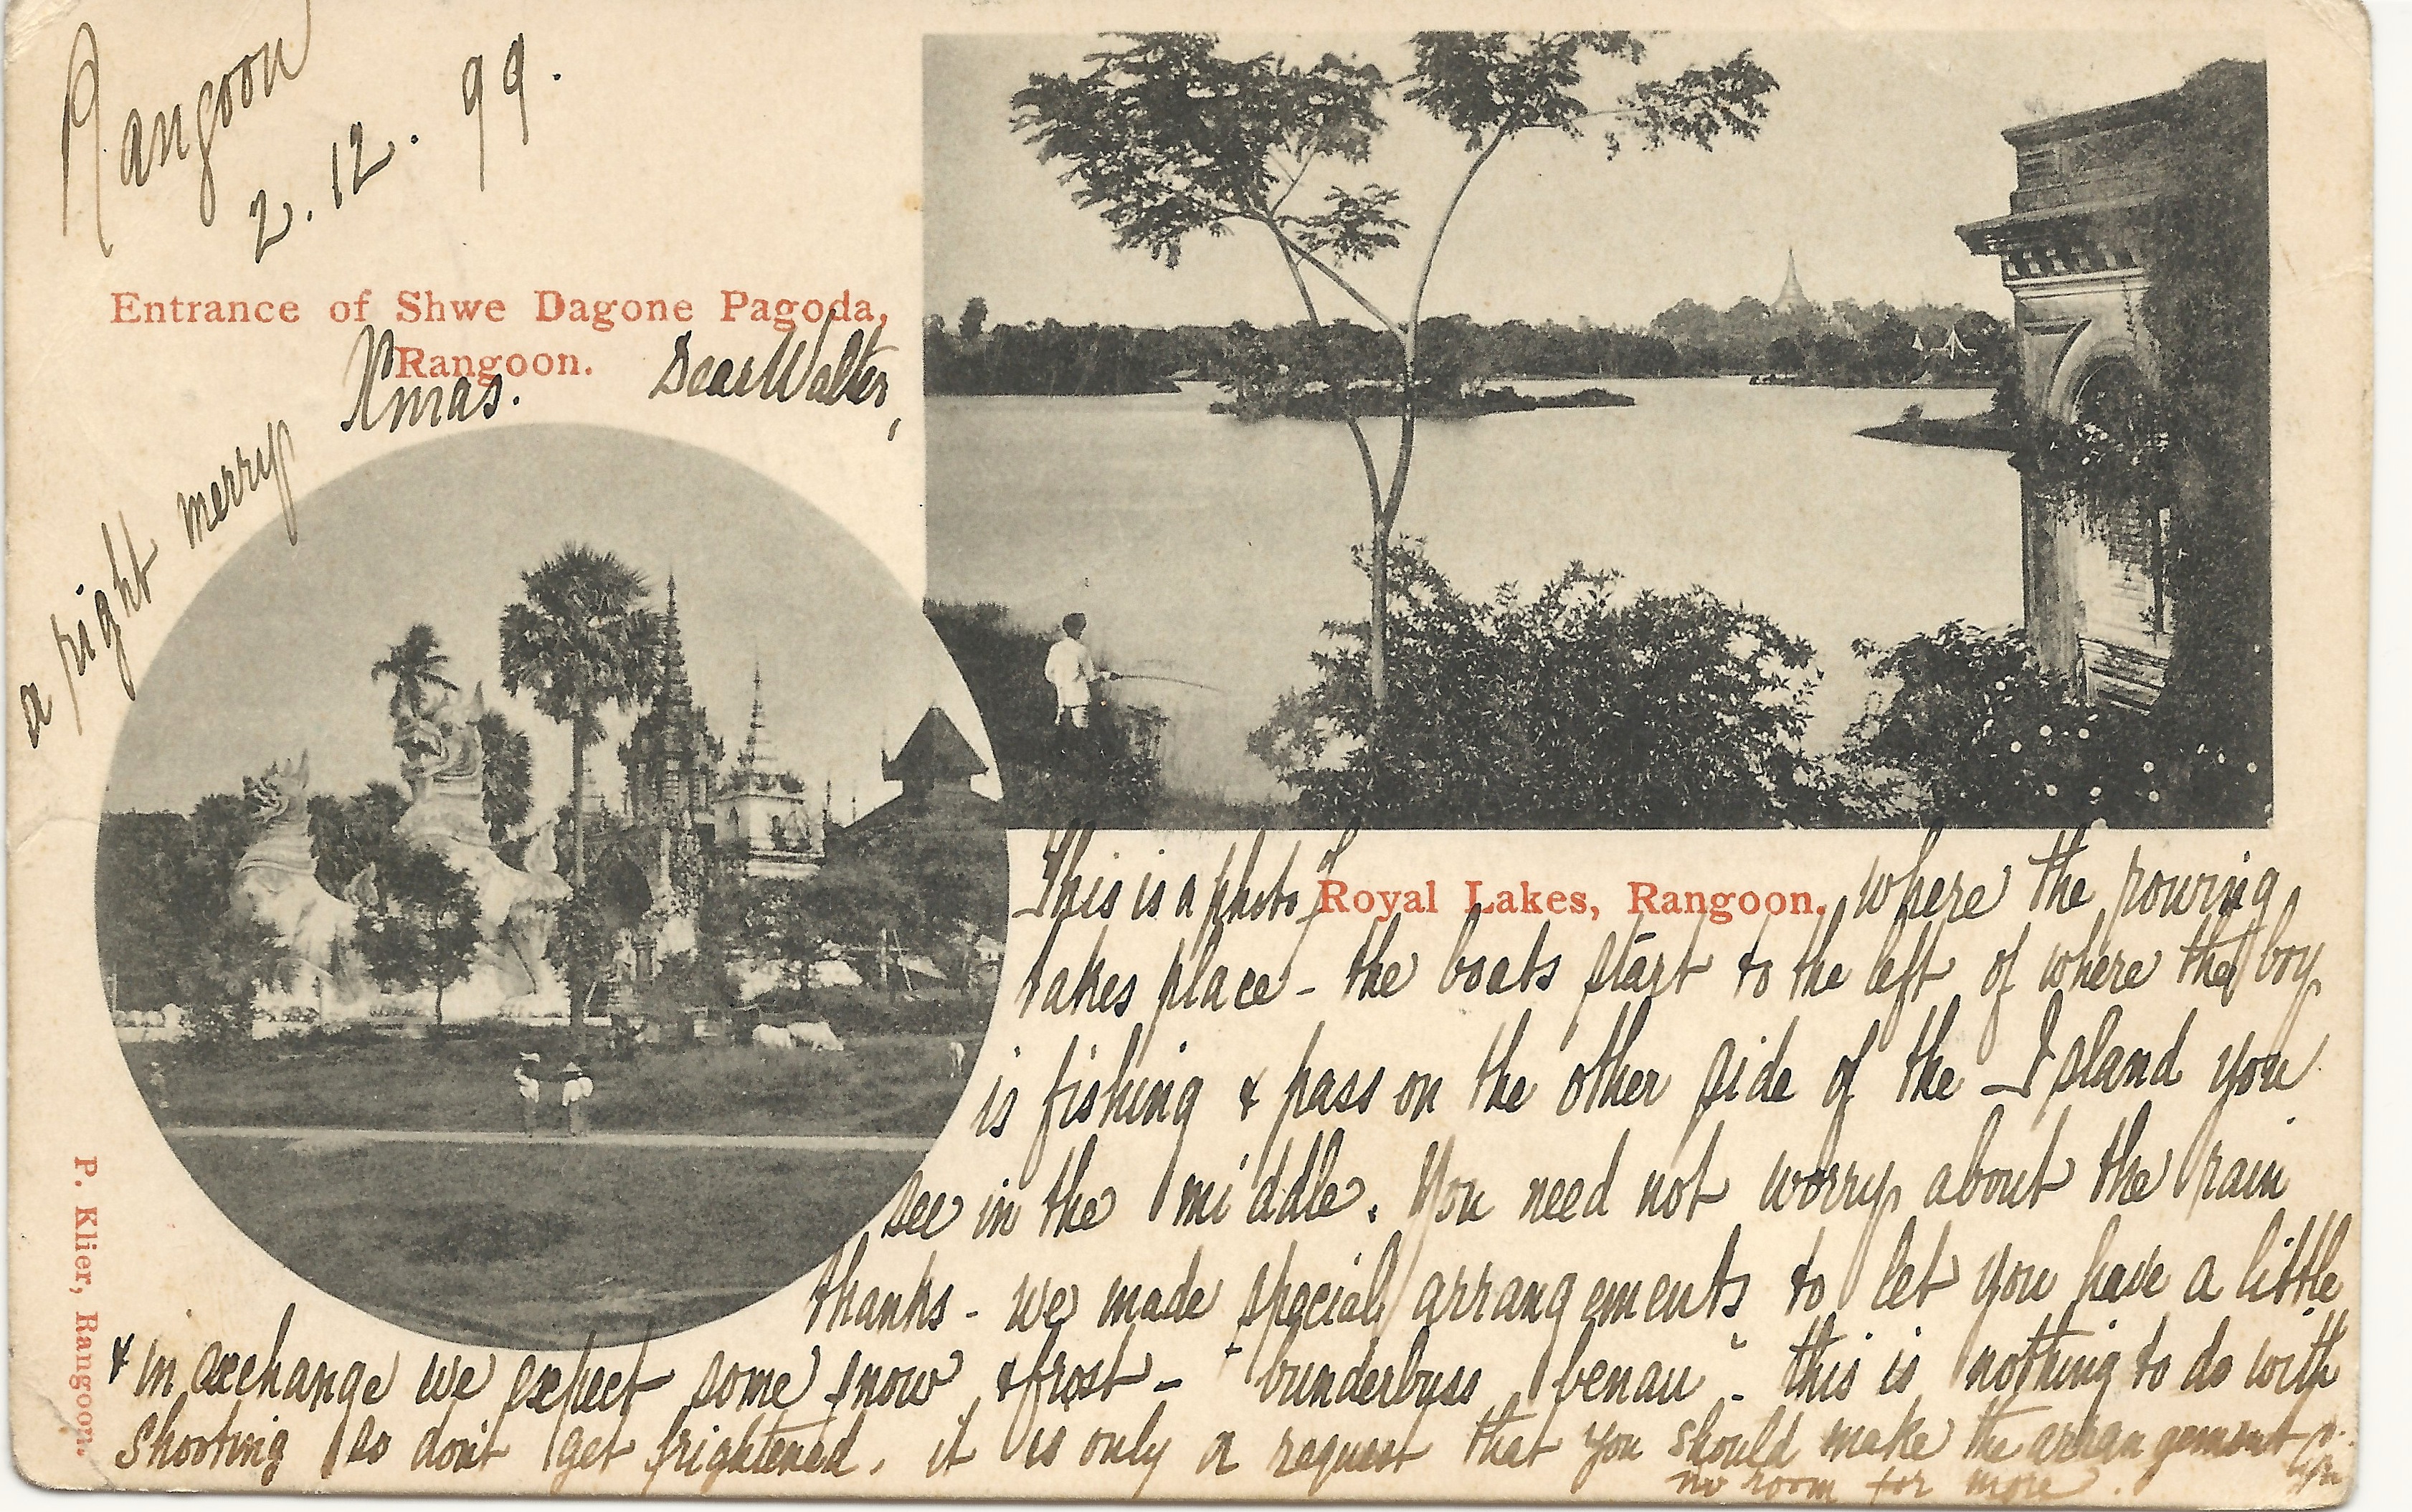 Rangoon
2.12.99.
Entrance of Shwe Dagone Pagoda,
Rangoon.
a right merry Xmas.
Dear Walter,
This is a photo of Royal Lakes, Rangoon. where the rowing
takes place - the boats start to the left of where the boy
is fishing & pass on the other side of the Island you
see in the middle. You need not worry about the rain
thanks - we made special arrangements to let you have a little
& in exchange we expect some snow & frost - "bunderbuss benau" - this is nothing to do with
shooting so don't get frightened, it is only a request that you should make the arrangement
no room for more.
P. Klier, Rangoon.